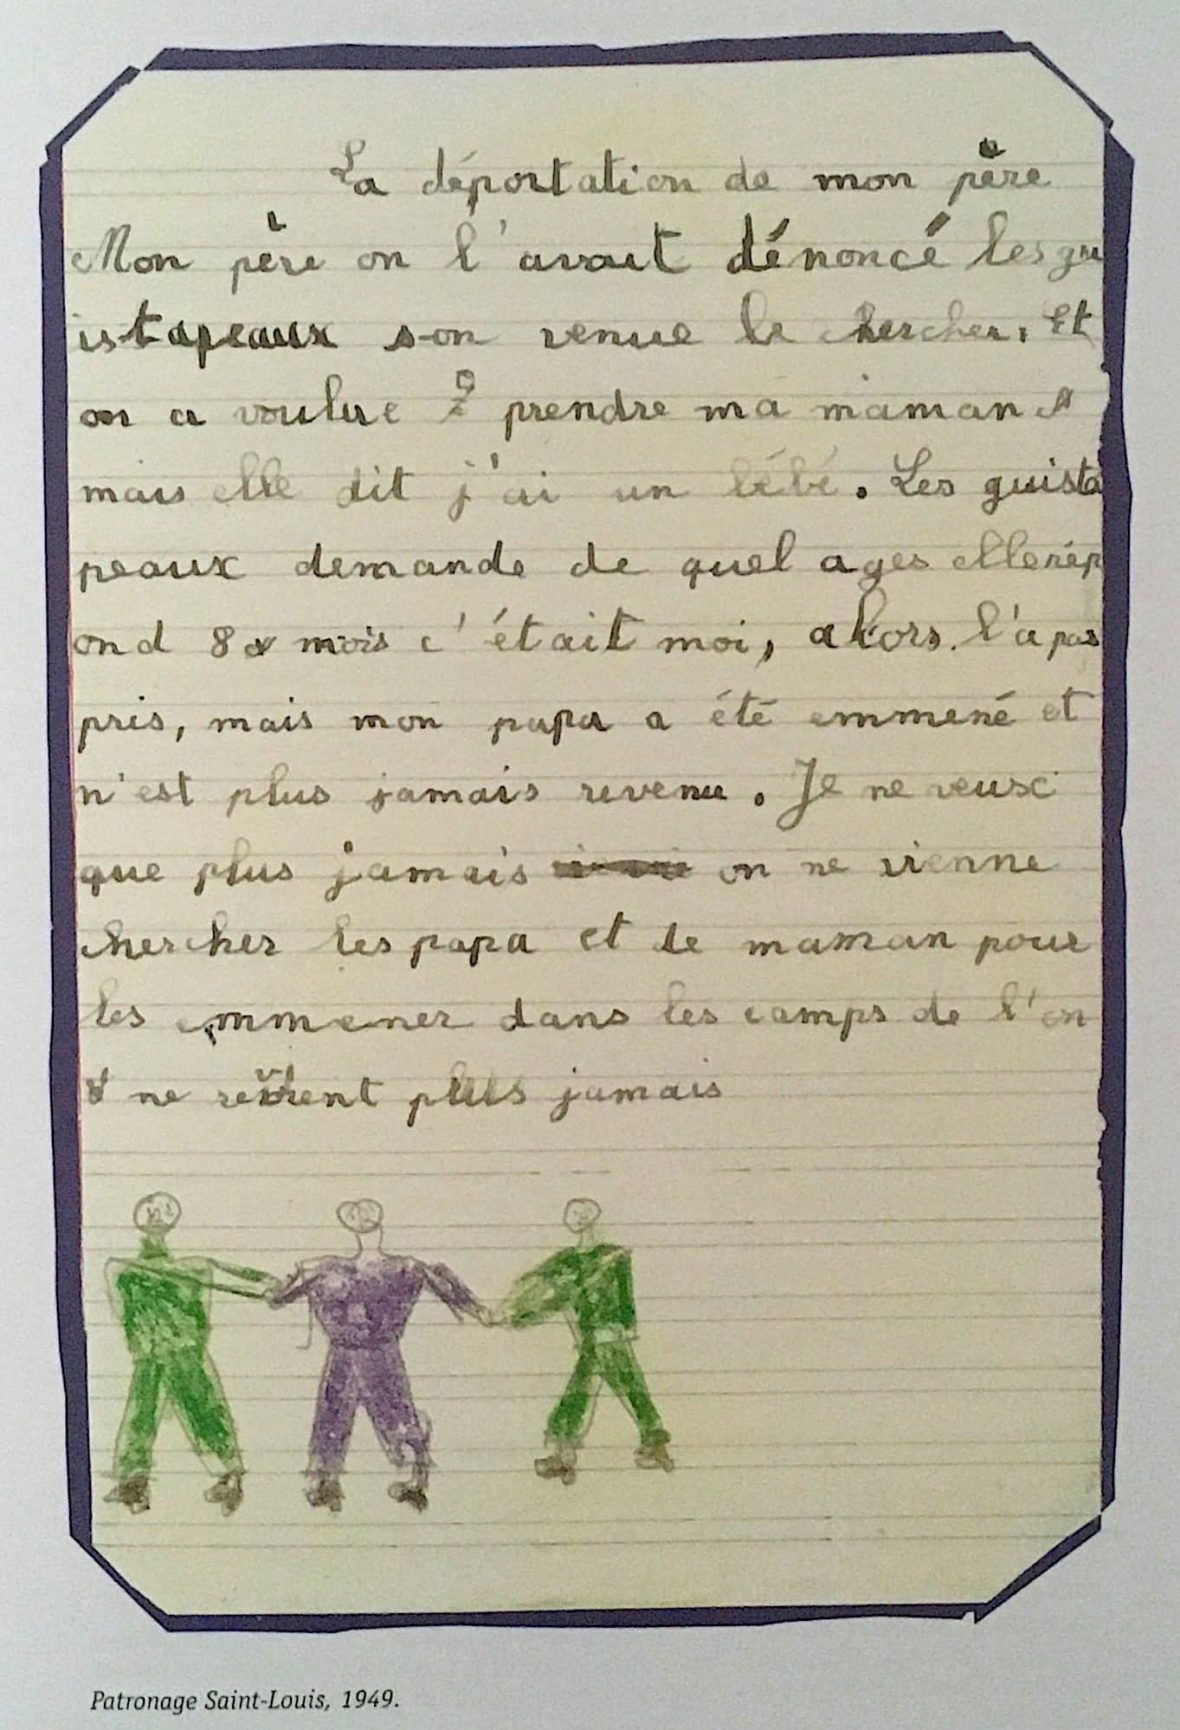 La déportation de mon père
Mon père on l'avait dénoncé les gu
istapeaux son venue le chercher. Et
on a voulue prendre ma maman
mais elle dit j'ai un bébé. Les guista
peaux demande de quel ages elle rép
ond 8 mois c'était moi, alors. l'a pas
pris, mais mon papa a été emmené et
n'est plus jamais revenu. Je ne veux
que plus jamais on ne vienne
chercher les papa et de maman pour
les emmener dans les camps de l'on
ne revient plus jamais
Patronage Saint-Louis, 1949.